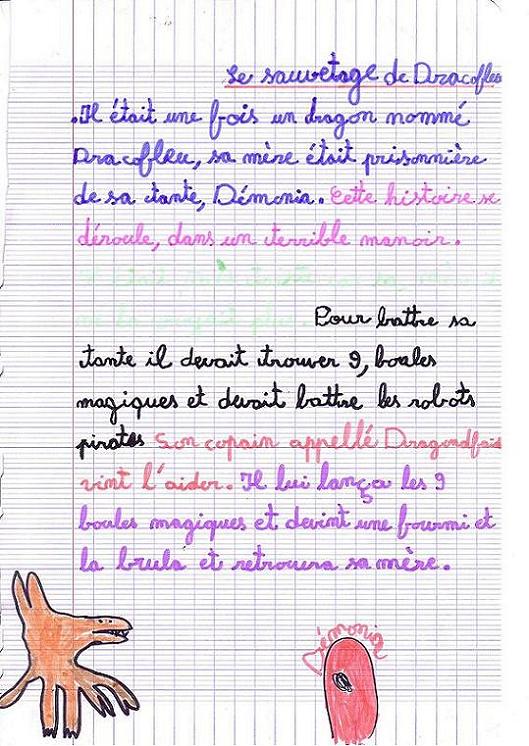 Le sauvetage de Dracofleu
.Il était une fois un dragon nommé
Dracofleu, sa mère était prisonnière
de sa tante, Démonia. Cette histoire se
déroule, dans un terrible manoir.
Pour battre sa
tante il devait trouver 9, boules
magiques et devait battre les robots
pirates Son copain appellé
vint l'aider. Il lui lança les 9
boules magiques et devint une fourmi et
la brula et retrouva sa mère.
Démonia